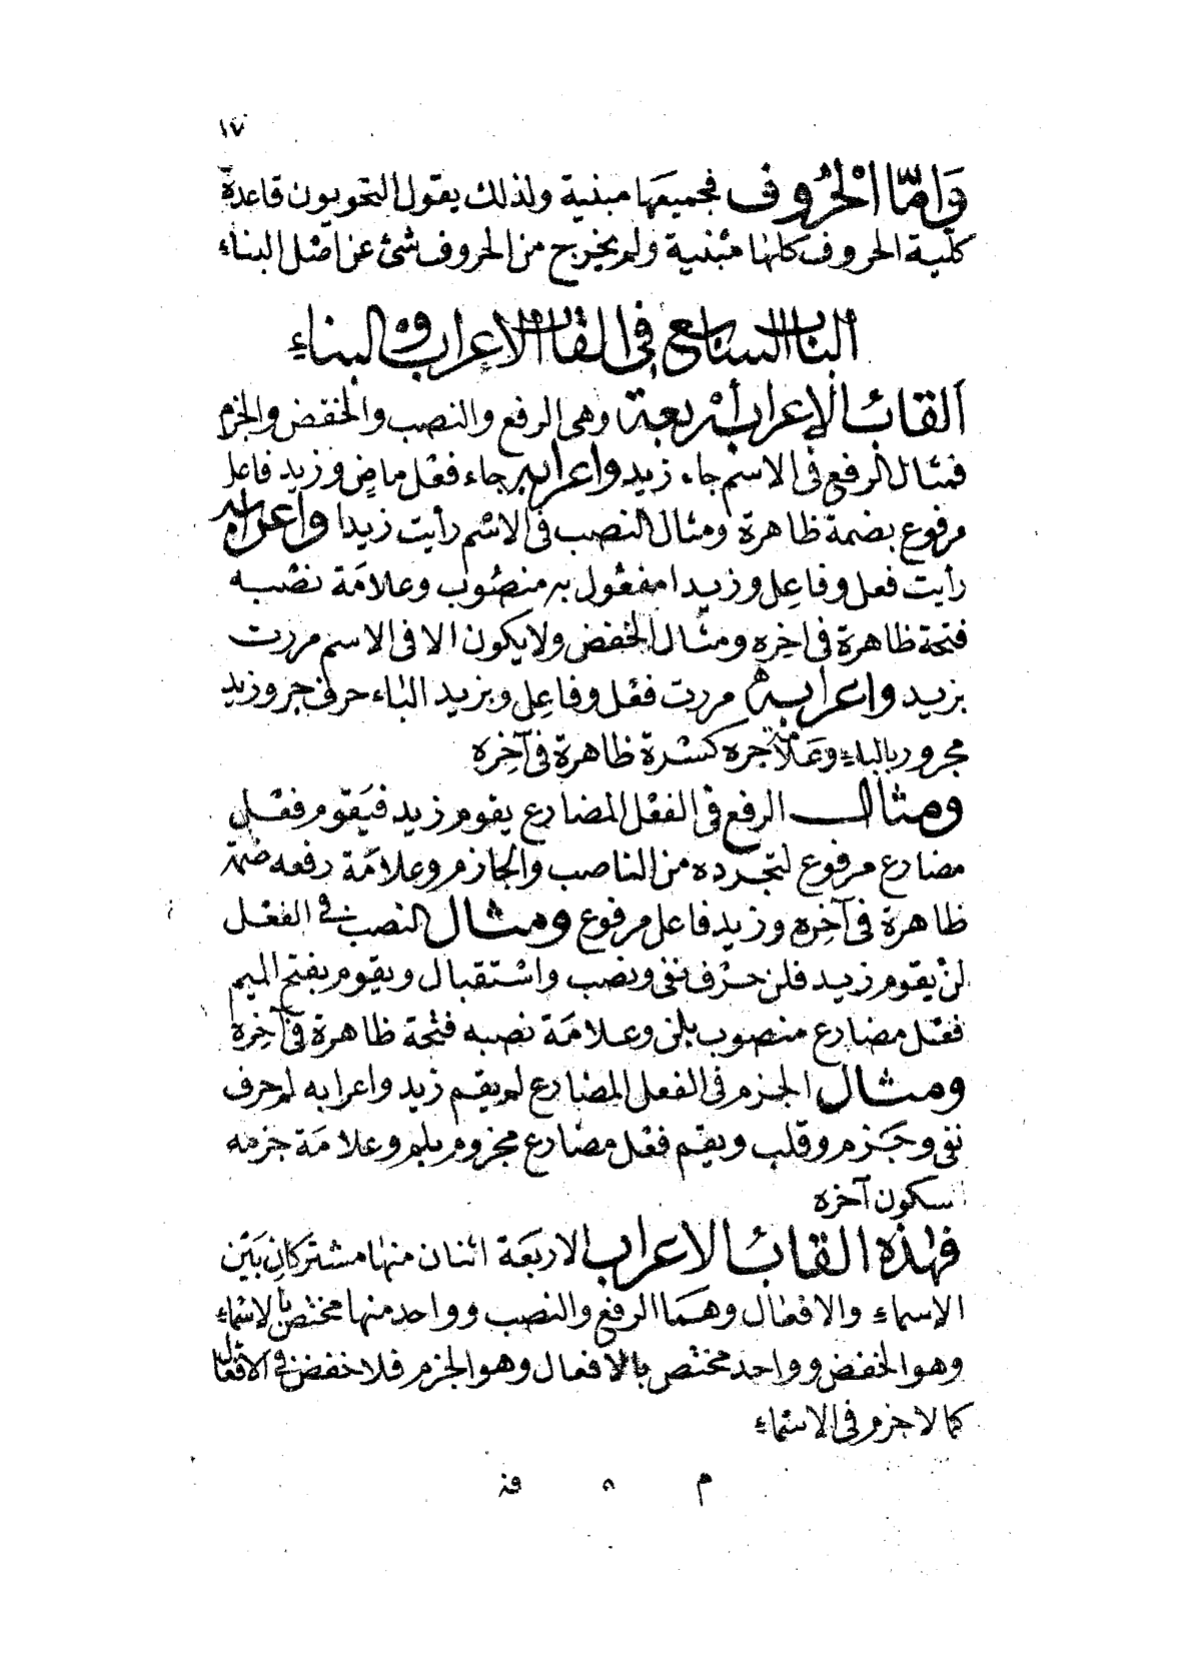 ١٧
وَامّا الْحُرُوف فجميعَها مبنية ولذلك يقول النحويون قاعدة
كلية الحروف كلها مبْنية ولم يخرج من الحروف شئ عن اصْل البناء
الباب السابع فى القاب الاعراب والبناء
القاب الاعراب أربعة وهى الرفع والنصب والخفض والجزم
فمثال الرفع فى الاسم جاء زيد واعرابه جاء فعْل ماضٍ وزيد فاعل
مرفوع بضمة ظاهرة ومثال النصب فى الاسْم رأيت زيدا واعرابه
رأيت فعل وفاعِل وزيدا مفعُول به منصُوب وعلامَة نصْبه
فتحة ظاهرة فى اخِره ومثَال الخفض ولا يكون الا فى الاسم مررت
بزيد واعرابه مررت فعْل وفاعِل وبزيد الباء حرف جر وزيد
مجرور بالباءِ وعَلامة جره كسْرة ظاهرة فى آخِره
ومثال الرفع فى الفعْل المضارع يقوم زيد فيَقوم فعْل
مضارع مرفوع لتجرده من الناصب والجازم وعلامَة رفعه ضمة
ظاهرة فى آخِره وزيد فاعل مرفوع ومثال النصب فى الفعْل
لنْ يقوم زيد فلن حرْف نفى ونصب واسْتقبال ويقوم بفتح الميم
فعْل مضارع منصوب بلن وعلامَة نصبه فتْحة ظاهرة فى آخِره
ومثال الجزم فى الفعل المضارع لم يقم زيد واعرابه لم حرف
نفى وجَزم وقلب ويقم فعْل مضارع مجزوم بلم وعلامَة جزمه
سكون آخره
فهٰذه القاب الاعراب الاربعَة اثنان منها مشتركانِ بَيْن
الاسماءِ والافعال وهمَا الرفع والنصب وواحد منها مختص بالاسْماءِ
وهو الخفض وواحد مختص بالافعال وهو الجزم فلا خفض فى الافعال
كما لا جزم فى الاسْماءِ
م ٥ فذ